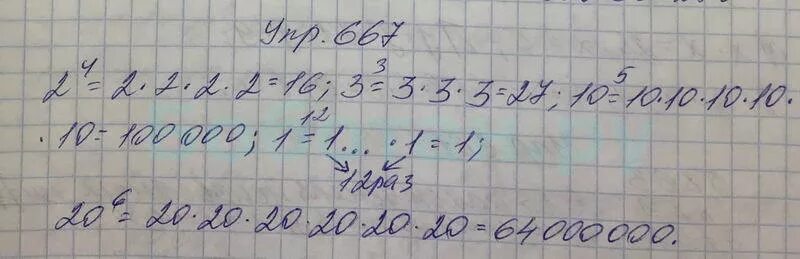 Упр. 667
2⁴ = 2 · 2 · 2 · 2 = 16; 3³ = 3 · 3 · 3 = 27; 10⁵ = 10 · 10 · 10 · 10 ·
· 10 = 100 000; 1¹² = 1 ... · 1 = 1;
12 раз
20⁶ = 20 · 20 · 20 · 20 · 20 · 20 = 64 000 000.